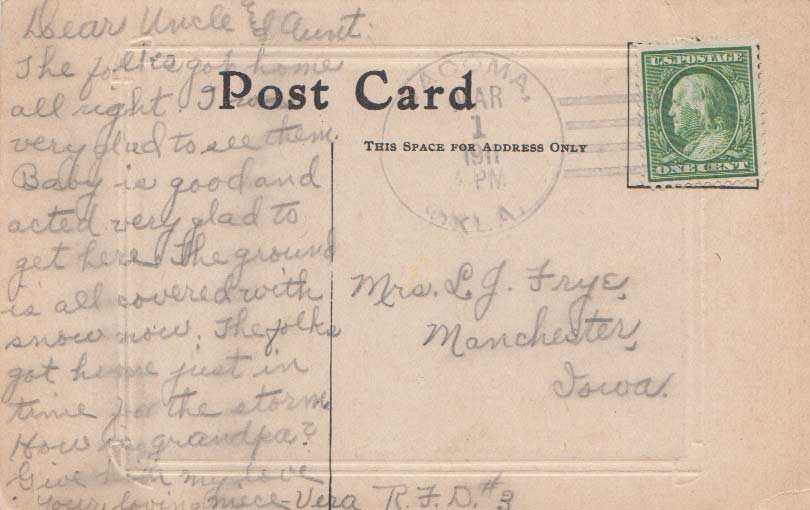 Dear Uncle & Aunt:
The folks got home
all right. I was
very glad to see them.
Baby is good and
acted very glad to
get here. The ground
is all covered with
snow now. The folks
got home just in
time for the storm.
How is grandpa?
Give him my love
Your loving niece - Vera R.F.D. #3
Post Card
THIS SPACE FOR ADDRESS ONLY
MAR
1
1911
PM
OKLA.
U.S. POSTAGE
ONE CENT
Mrs. L. J. Frye,
Manchester,
Iowa.